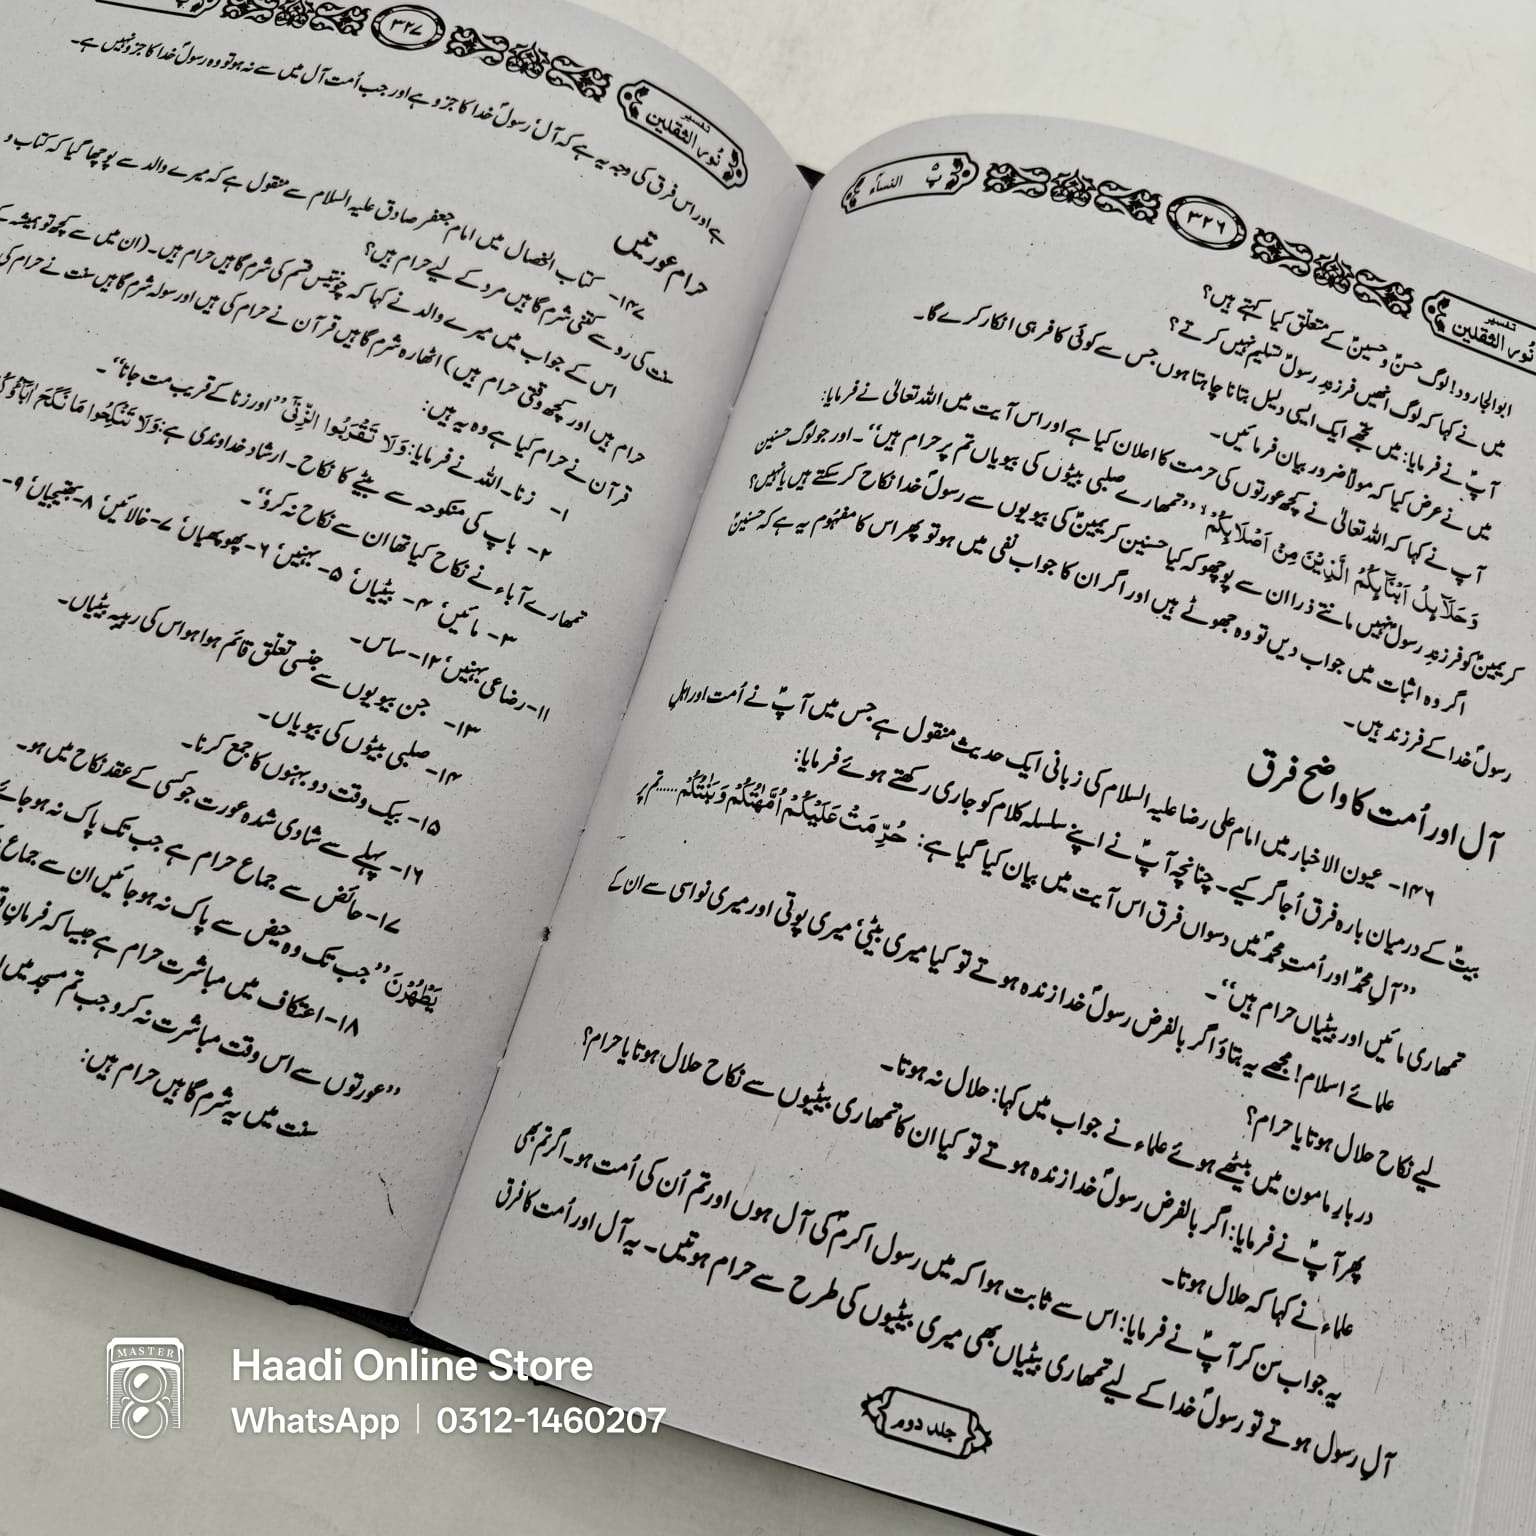 تفسیر نور الثقلین
۳۲۶
النساء
پ
ابوالجارود! لوگ حسنؑ و حسینؑ کے متعلق کیا کہتے ہیں؟
میں نے کہا کہ لوگ انھیں فرزندِ رسولؐ تسلیم نہیں کرتے؟
آپؑ نے فرمایا: میں تجھے ایک ایسی دلیل بتانا چاہتا ہوں جس سے کوئی کافر ہی انکار کرے گا۔
میں نے عرض کیا کہ مولاؑ ضرور بیان فرمائیں۔
آپ نے کہا کہ اللہ تعالیٰ نے کچھ عورتوں کی حرمت کا اعلان کیا ہے اور اس آیت میں اللہ تعالیٰ نے فرمایا:
وَحَلَآئِلُ اَبْنَآئِكُمُ الَّذِيْنَ مِنْ اَصْلَابِكُمْ ”تمھارے صلبی بیٹوں کی بیویاں تم پر حرام ہیں“۔ اور جو لوگ حسنین
کریمینؑ کو فرزندِ رسولؐ نہیں مانتے ذرا ان سے پوچھو کہ کیا حسنین کریمینؑ کی بیویوں سے رسولؐ خدا نکاح کر سکتے ہیں یا نہیں؟
اگر وہ اثبات میں جواب دیں تو وہ جھوٹے ہیں اور اگر ان کا جواب نفی میں ہو تو پھر اس کا مفہوم یہ ہے کہ حسنینؑ
رسولؐ خدا کے فرزند ہیں۔
آل اور اُمت کا واضح فرق
۱۴۶- عیون الاخبار میں امام علی رضا علیہ السلام کی زبانی ایک حدیث منقول ہے جس میں آپؑ نے اُمت اور اہلِ
بیتؑ کے درمیان بارہ فرق اُجاگر کیے۔ چنانچہ آپؑ نے اپنے سلسلہ کلام کو جاری رکھتے ہوئے فرمایا:
”آلِ محمدؐ اور اُمتِ محمدؐ میں دسواں فرق اس آیت میں بیان کیا گیا ہے: حُرِّمَتْ عَلَيْكُمْ اُمَّهٰتُكُمْ وَبَنٰتُكُمْ ...... تم پر
تمھاری مائیں اور بیٹیاں حرام ہیں“۔
علمائے اسلام! مجھے یہ بتاؤ اگر بالفرض رسولؐ خدا زندہ ہوتے تو کیا میری بیٹی، میری پوتی اور میری نواسی سے ان کے
لیے نکاح حلال ہوتا یا حرام؟
دربارِ مامون میں بیٹھے ہوئے علماء نے جواب میں کہا: حلال نہ ہوتا۔
پھر آپؑ نے فرمایا: اگر بالفرض رسولؐ خدا زندہ ہوتے تو کیا ان کا تمھاری بیٹیوں سے نکاح حلال ہوتا یا حرام؟
علماء نے کہا کہ حلال ہوتا۔
یہ جواب سن کر آپؑ نے فرمایا: اس سے ثابت ہوا کہ میں رسول اکرمؐ کی آل ہوں اور تم اُن کی اُمت ہو۔ اگر تم بھی
آلِ رسول ہوتے تو رسولؐ خدا کے لیے تمھاری بیٹیاں بھی میری بیٹیوں کی طرح سے حرام ہوتیں۔ یہ آل اور اُمت کا فرق
جلد دوم
تفسیر نور الثقلین
۳۲۷
ہے اور اس فرق کی وجہ یہ ہے کہ آلؑ رسولؐ خدا کا جزو ہے اور جب اُمت آل میں سے نہ ہو تو وہ رسولؐ خدا کا جزو نہیں ہے۔
حرام عورتیں
۱۴۷- کتاب الخصال میں امام جعفر صادق علیہ السلام سے منقول ہے کہ میرے والد سے پوچھا گیا کہ کتاب و
سنت کی رو سے کتنی شرم گاہیں مرد کے لیے حرام ہیں؟
اس کے جواب میں میرے والد نے کہا کہ چونتیس قسم کی شرم گاہیں حرام ہیں۔ (ان میں سے کچھ تو ہمیشہ
حرام ہیں اور کچھ وقتی حرام ہیں) اٹھارہ شرم گاہیں قرآن نے حرام کی ہیں اور سولہ شرم گاہیں سنت نے حرام کی
قرآن نے حرام کیا ہے وہ یہ ہیں:
۱- زنا۔ اللہ نے فرمایا: وَلَا تَقْرَبُوا الزِّنٰٓى ”اور زنا کے قریب مت جانا“۔
۲- باپ کی منکوحہ سے بیٹے کا نکاح۔ ارشاد خداوندی ہے: وَلَا تَنْكِحُوا مَا نَكَحَ اٰبَآؤُكُمْ
تمھارے آباء نے نکاح کیا تھا ان سے نکاح نہ کرو“۔
۳- مائیں، ۴- بیٹیاں، ۵- بہنیں، ۶- پھوپھیاں، ۷- خالائیں، ۸- بھتیجیاں، ۹-
۱۱- رضاعی بہنیں، ۱۲- ساس۔
۱۳- جن بیویوں سے جنسی تعلق قائم ہوا ہو اس کی ربیبہ بیٹیاں۔
۱۴- صلبی بیٹوں کی بیویاں۔
۱۵- بیک وقت دو بہنوں کا جمع کرنا۔
۱۶- پہلے سے شادی شدہ عورت جو کسی کے عقدِ نکاح میں ہو۔
۱۷- حائض سے جماع حرام ہے جب تک پاک نہ ہو جائے
يَطْهُرْنَ ”جب تک وہ حیض سے پاک نہ ہو جائیں ان سے جماع
۱۸- اعتکاف میں مباشرت حرام ہے جیسا کہ فرمانِ
”عورتوں سے اس وقت مباشرت نہ کرو جب تم مسجد میں
سنت میں یہ شرم گاہیں حرام ہیں:
MASTER
Haadi Online Store
WhatsApp | 0312-1460207